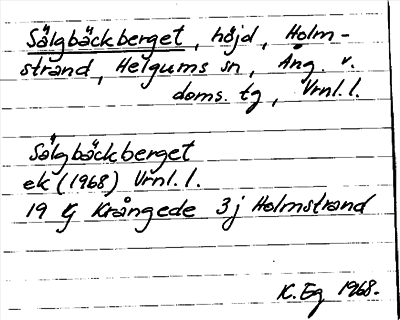 Sälgbäckberget, höjd, Holm-
strand, Helgums sn, Ång. v.
doms. tg, Vrnl. l.
Sälgbäckberget
ek (1968) Vrnl. l.
19 G Krångede 3j Holmstrand
K. Eg 1968.